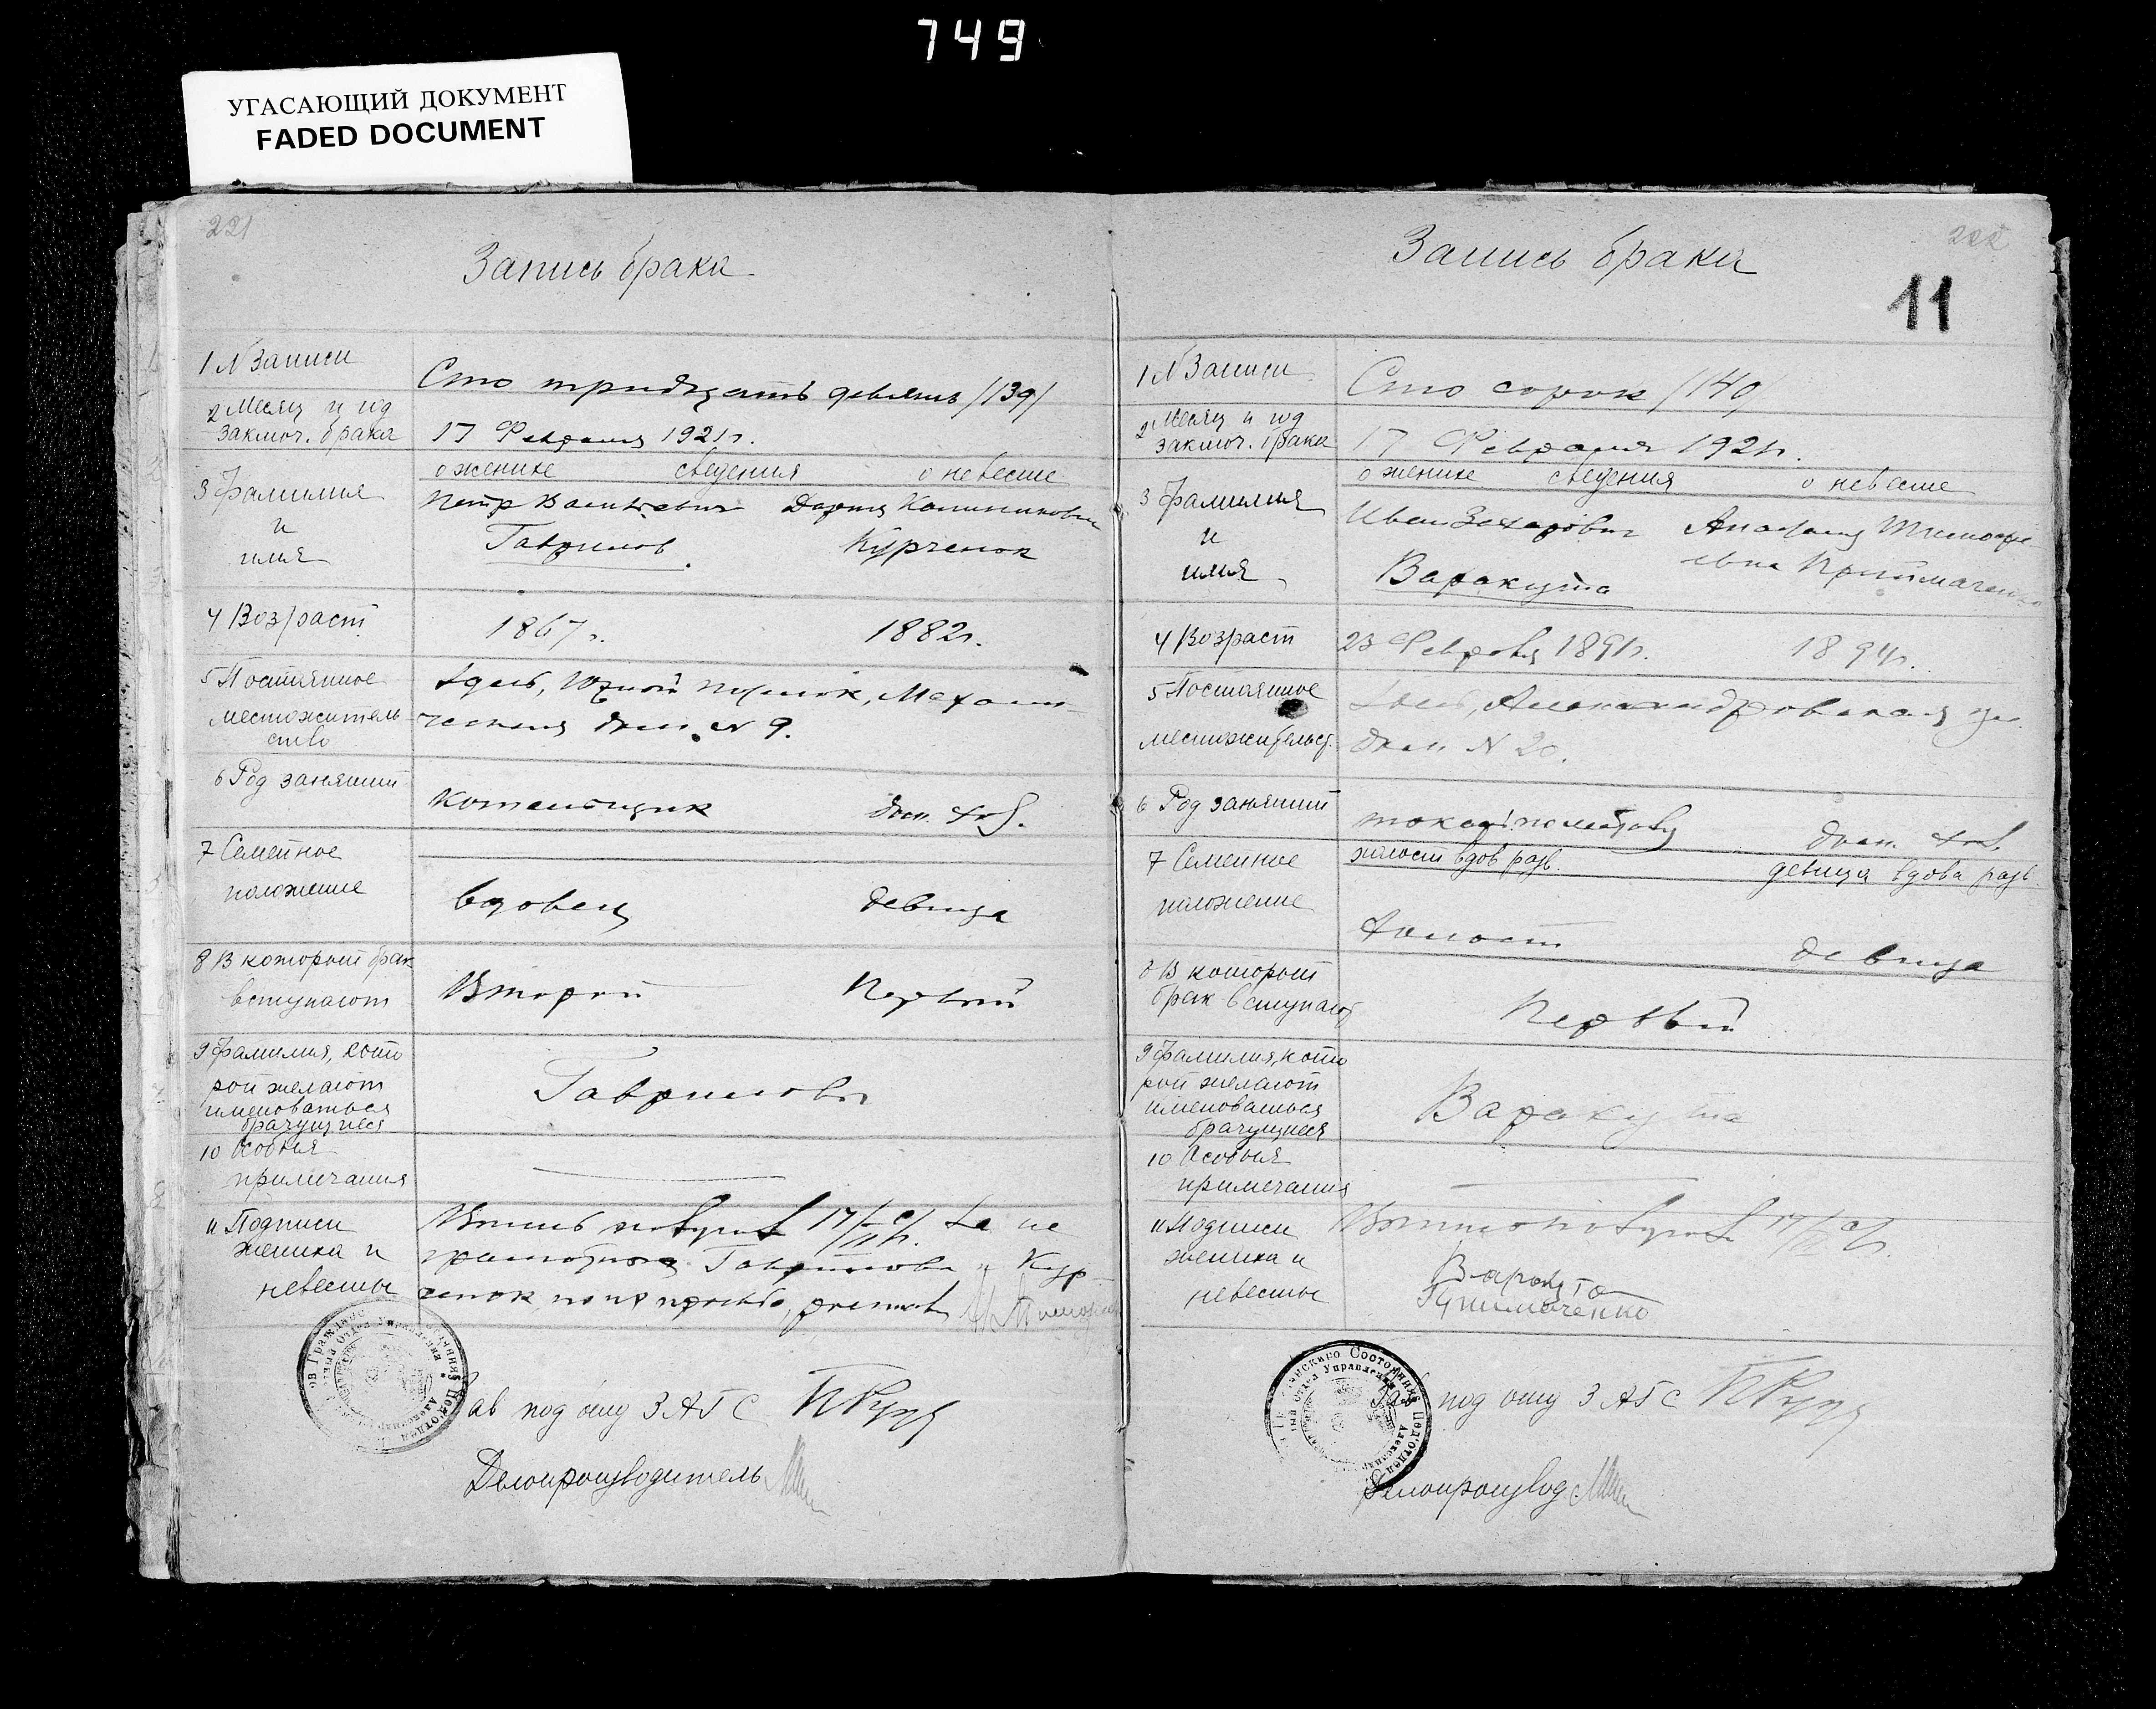 749
УГАСАЮЩИЙ ДОКУМЕНТ
FADED DOCUMENT
221
Запись брака
1 N Записи
Сто тридцать девять /139/
2 Месяц и год
заключ. брака
17 Февраля 1921г.
о женихе сведения о невесте
3 Фамилия
и
имя
Петр Васильевич
Гаврилов
Дарья Калиниковна
Курченок
4 Возраст
1867г. 1882г.
5 Постоянное
местожитель
ство
здесь, Южной поселок, Механи-
ческая дом N 9.
6 Род занятий
котельщик дом. хоз.
7 Семейное
положение
вдовец девица
8 В который брак
вступают
Второй Первый
9 Фамилия, кото
рой желают
именоваться
брачущиеся
Гавриловы
10 Особыя
примечания
11 Подписи
жениха и
невесты
17/II с/г. За не
грамотных Гаврилова и Кур-
ченок по их просьбе,
Зав под отд ЗАГС
Делопроизводитель
222
11
Запись брака
1 N Записи
Сто сорок /140/
2 Месяц и год
заключ. брака
17 Февраля 1921г.
о женихе сведения о невесте
3 Фамилия
и
имя
Иван Захарович
Варакута
Тимофе-
евна Притыманенко
4 Возраст
23 Февраля 1891г. 1894г.
5 Постоянное
местожительст.
здесь, Александровская ул.
дом N 20.
6 Род занятий
токарь по металлу дом. хоз.
7 Семейное
положение
холост вдов разв. девица вдова разв.
холост девица
8 В который
брак вступают
Первый
9 Фамилия, кото
рой желают
именоваться
брачущиеся
Варакута
10 Особыя
примечания
11 Подписи
жениха и
невесты
17/II с/г.
Варакута
Зав под отд ЗАГС
Делопроизвод